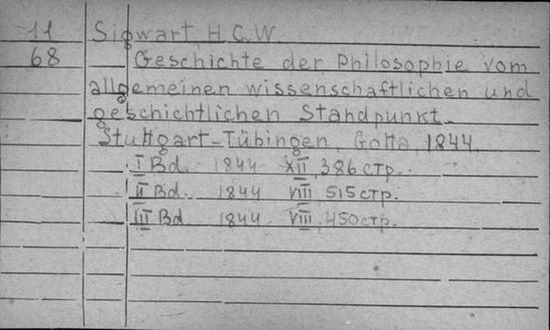 11 Sigwart, H.C.W.
68 Geschichte der Philosophie vom
allgemeinen wissenschaftlichen und
geschichtlichen Standpunkt.
Stuttgart-Tübingen, Gotta, 1844.
I Bd. 1844 XII, 386 стр.
II Bd. 1844 VIII 515 стр.
III Bd. 1844 VIII, 450 стр.